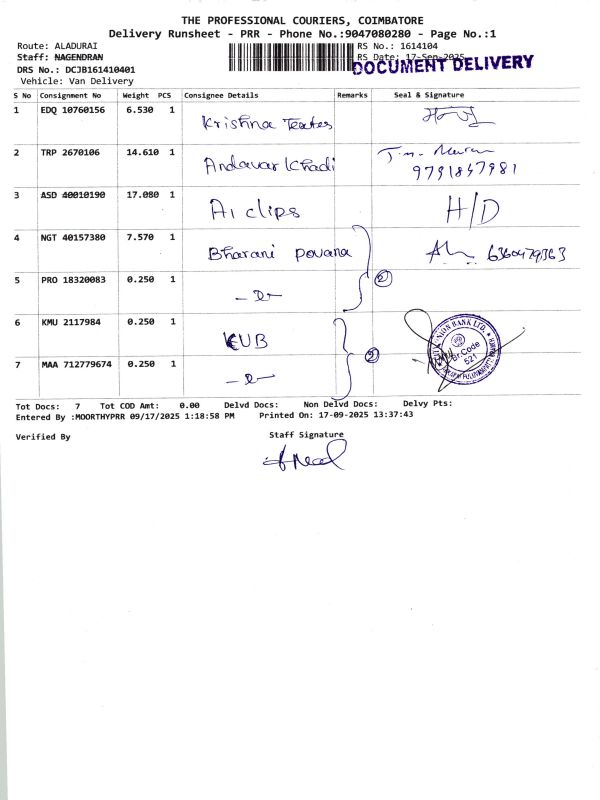 THE PROFESSIONAL COURIERS, COIMBATORE
Delivery Runsheet - PRR - Phone No.:9047080280 - Page No.:1
Route: ALADURAI RS No.: 1614104
Staff: NAGENDRAN RS Date: 17-Sep-2025
DOCUMENT DELIVERY
DRS No.: DCJB161410401
Vehicle: Van Delivery
S No Consignment No Weight PCS Consignee Details Remarks Seal & Signature
1 EDQ 10760156 6.530 1 Krishna
2 TRP 2670106 14.610 1 Andavar Khadi
9791847981
3 ASD 40010190 17.080 1 A1 clips H/D
4 NGT 40157380 7.570 1 Bharani povana 6360479363
5 PRO 18320083 0.250 1 2
6 KMU 2117984 0.250 1 KUB
UNION BANK LTD.
Br.Code
521
7 MAA 712779674 0.250 1 2
Tot Docs: 7 Tot COD Amt: 0.00 Delvd Docs: Non Delvd Docs: Delvy Pts:
Entered By :MOORTHYPRR 09/17/2025 1:18:58 PM Printed On: 17-09-2025 13:37:43
Verified By Staff Signature